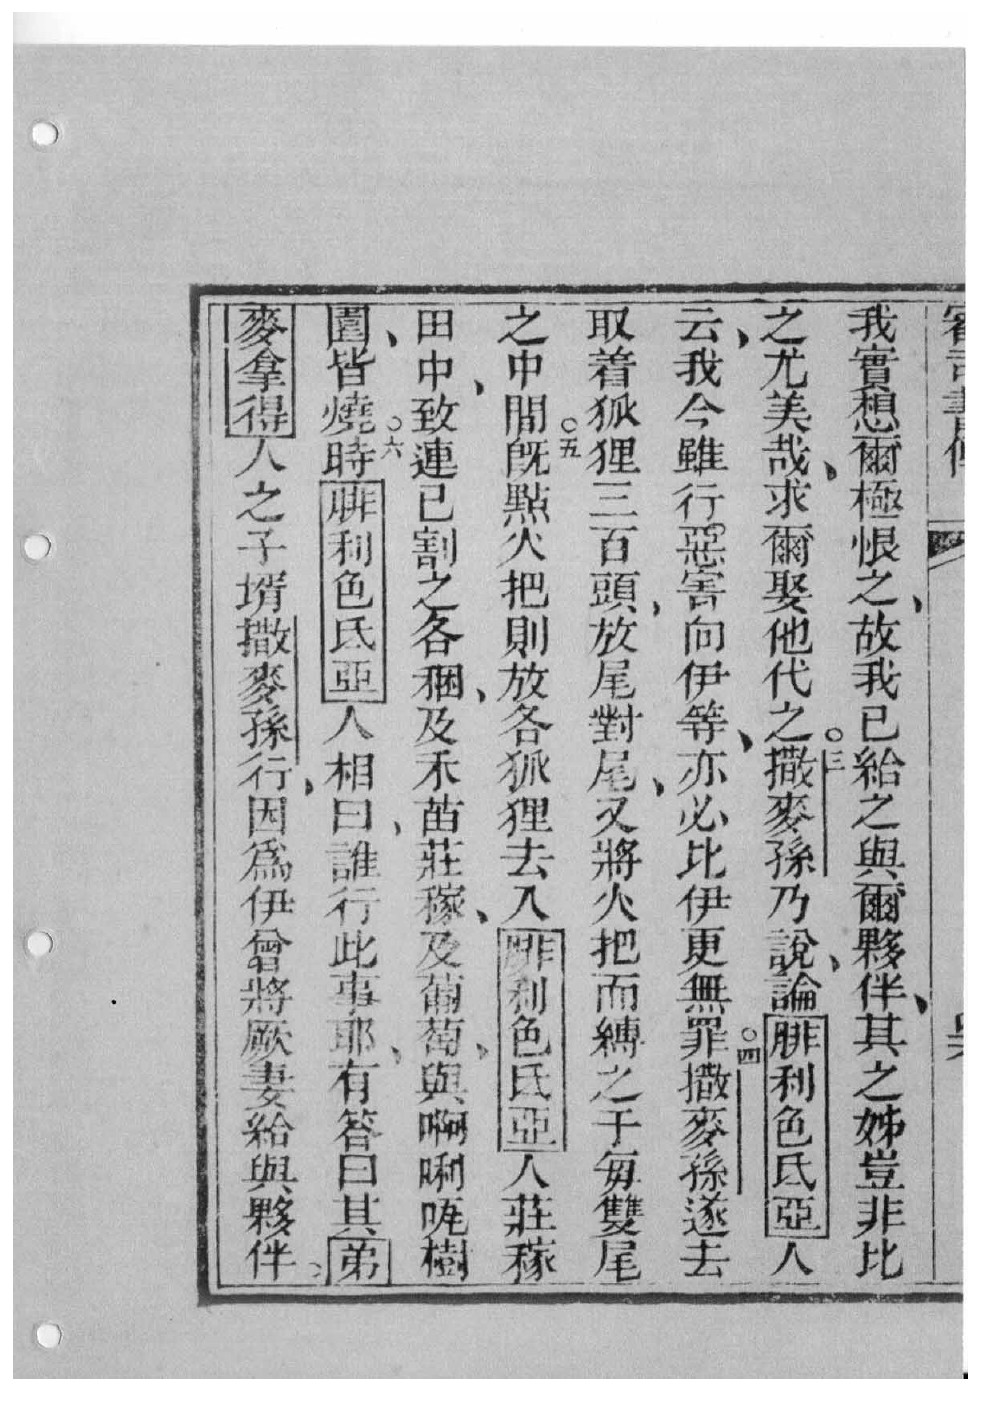 審司書傳
我實想爾極恨之、故我已給之與爾夥伴、其之姊豈非比
之尤美哉、求爾娶他代之。三撒麥孫乃說、論腓利色氐亞人
云、我今雖行惡害向伊等、亦必比伊更無罪。四撒麥孫遂去
取着狐狸三百頭、放尾對尾、又將火把而縛之于每雙尾
之中間。五既點火把則放各狐狸去入腓利色氐亞人莊稼
田中、致連已割之各稛、及禾苗莊稼、及葡萄、與啊唎㖠樹
園、皆燒。六時腓利色氐亞人相曰、誰行此事耶、有答曰其弟
麥拿得人之子壻撒麥孫行、因爲伊曾將厥妻給與夥伴。